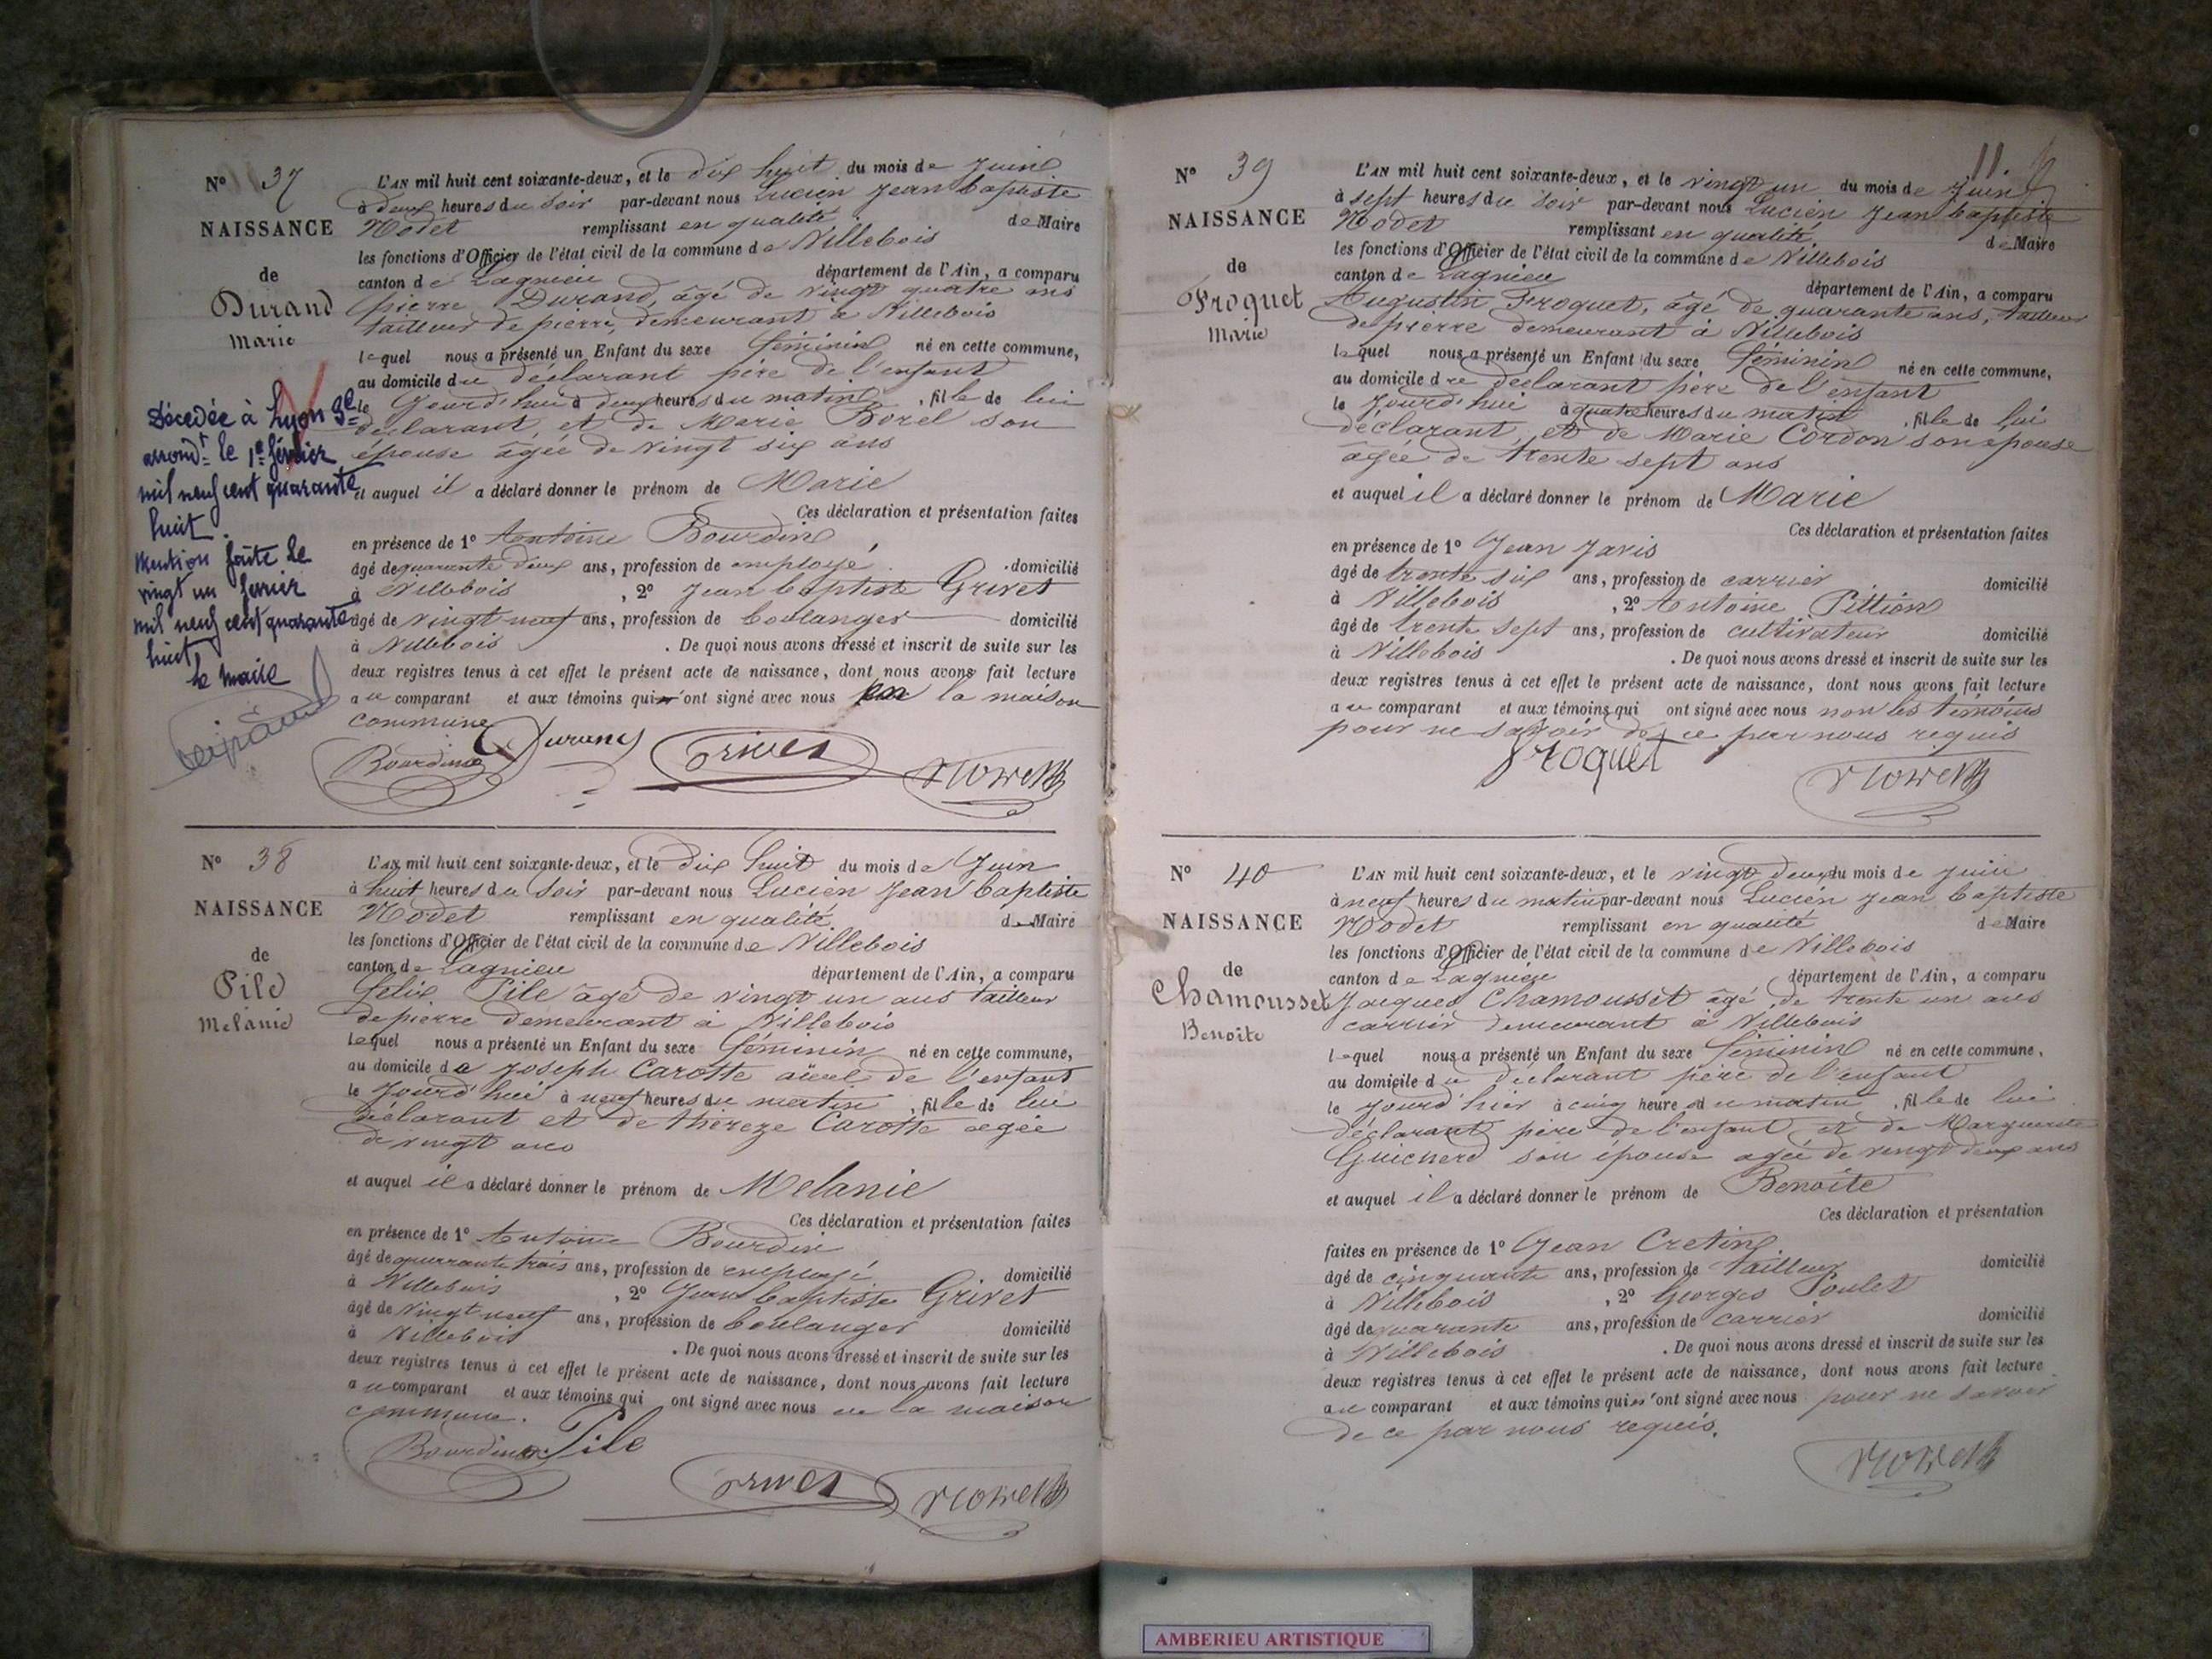 N° 37
NAISSANCE
de
Durand
Marie
L'AN mil huit cent soixante-deux, et le dix huit du mois de Juin
à deux heures du soir par-devant nous Lucien Jean baptiste
Nodet remplissant en qualité de Maire
les fonctions d'Officier de l'état civil de la commune de Villebois
canton de Lagnieu département de l'Ain, a comparu
pierre Durand, âgé de vingt quatre ans
tailleur de pierre, demeurant a Villebois
lequel nous a présenté un Enfant du sexe féminin né en cette commune,
au domicile du déclarant père de l'enfant
le Jourd'hui à deux heures du matin, fille de lui
déclarant, et de Marie Borel son
épouse âgée de vingt six ans
et auquel il a déclaré donner le prénom de Marie
Ces déclaration et présentation faites
en présence de 1° Antoine Bourdin
âgé de quarante deux ans, profession de employé domicilié
à Villebois, 2° Jean baptiste Grivet
âgé de vingt neuf ans, profession de boulanger domicilié
à Villebois. De quoi nous avons dressé et inscrit de suite sur les
deux registres tenus à cet effet le présent acte de naissance, dont nous avons fait lecture
au comparant et aux témoins qui ont signé avec nous en la maison
commune
Durand
Bourdin Grivet Nodet
Décedée à Lyon 3e
arrondt le 1er février
mil neuf cent quarante
huit.
Mention faite le
vingt un fevrier
mil neuf cent quarante
huit,
Le maire
N° 38
NAISSANCE
de
Pile
Melanie
L'AN mil huit cent soixante-deux, et le dix huit du mois de Juin
à huit heures du soir par-devant nous Lucien Jean baptiste
Nodet remplissant en qualité de Maire
les fonctions d'Officier de l'état civil de la commune de Villebois
canton de Lagnieu département de l'Ain, a comparu
felix Pile âgé de vingt un ans tailleur
de pierre demeurant à Villebois
lequel nous a présenté un Enfant du sexe féminin né en cette commune,
au domicile de Joseph Carotte aïeul de l'enfant
le Jourd'hui à neuf heures du matin, fille de lui
déclarant et de thereze Carotte agée
de vingt ans
et auquel il a déclaré donner le prénom de Melanie
Ces déclaration et présentation faites
en présence de 1° Antoine Bourdin
âgé de quarrante trois ans, profession de employé domicilié
à Villebois, 2° Jean baptiste Grivet
âgé de vingt neuf ans, profession de boulanger domicilié
à Villebois. De quoi nous avons dressé et inscrit de suite sur les
deux registres tenus à cet effet le présent acte de naissance, dont nous avons fait lecture
au comparant et aux témoins qui ont signé avec nous en la maison
commune.
Bourdin Pile
Grivet Nodet
11
N° 39
NAISSANCE
de
Froquet
Marie
L'AN mil huit cent soixante-deux, et le vingt un du mois de Juin
à sept heures du soir par-devant nous Lucien Jean baptiste
Nodet remplissant en qualité de Maire
les fonctions d'Officier de l'état civil de la commune de Villebois
canton de Lagnieu département de l'Ain, a comparu
Augustin Froquet, âgé de quarante ans, tailleur
de pierre demeurant à Villebois
lequel nous a présenté un Enfant du sexe féminin né en cette commune,
au domicile du déclarant père de l'enfant
le Jourd'hui à quatre heures du matin, fille de lui
déclarant, et de Marie Cordon son epouse
âgée de trente sept ans
et auquel il a déclaré donner le prénom de Marie
Ces déclaration et présentation faites
en présence de 1° Jean Javis
âgé de trente six ans, profession de carrier domicilié
à Villebois, 2° Antoine Pittion
âgé de trente sept ans, profession de cultivateur domicilié
à Villebois. De quoi nous avons dressé et inscrit de suite sur les
deux registres tenus à cet effet le présent acte de naissance, dont nous avons fait lecture
au comparant et aux témoins qui ont signé avec nous non les témoins
pour ne savoir de ce par nous requis
Froquet
Nodet
N° 40
NAISSANCE
de
Chamousset
Benoite
L'AN mil huit cent soixante-deux, et le vingt deux du mois de Juin
à neuf heures du matin par-devant nous Lucien Jean baptiste
Nodet remplissant en qualité de Maire
les fonctions d'Officier de l'état civil de la commune de Villebois
canton de Lagnieu département de l'Ain, a comparu
Jacques Chamousset âgé de trente un ans
carrier demeurant à Villebois
lequel nous a présenté un Enfant du sexe féminin né en cette commune,
au domicile du déclarant père de l'enfant
le Jourd'hier à cinq heure du matin, fille de lui
déclarant père de l'enfant et de Marguerite
Guicherd son épouse agée de vingt deux ans
et auquel il a déclaré donner le prénom de Benoîte
Ces déclaration et présentation
faites en présence de 1° Jean Cretin
âgé de cinquante ans, profession de tailleur domicilié
à Villebois, 2° Georges Poulet
âgé de quarante ans, profession de carrier domicilié
à Villebois. De quoi nous avons dressé et inscrit de suite sur les
deux registres tenus à cet effet le présent acte de naissance, dont nous avons fait lecture
au comparant et aux témoins qui n'ont signé avec nous pour ne savoir
de ce par nous requis.
Nodet
AMBERIEU ARTISTIQUE